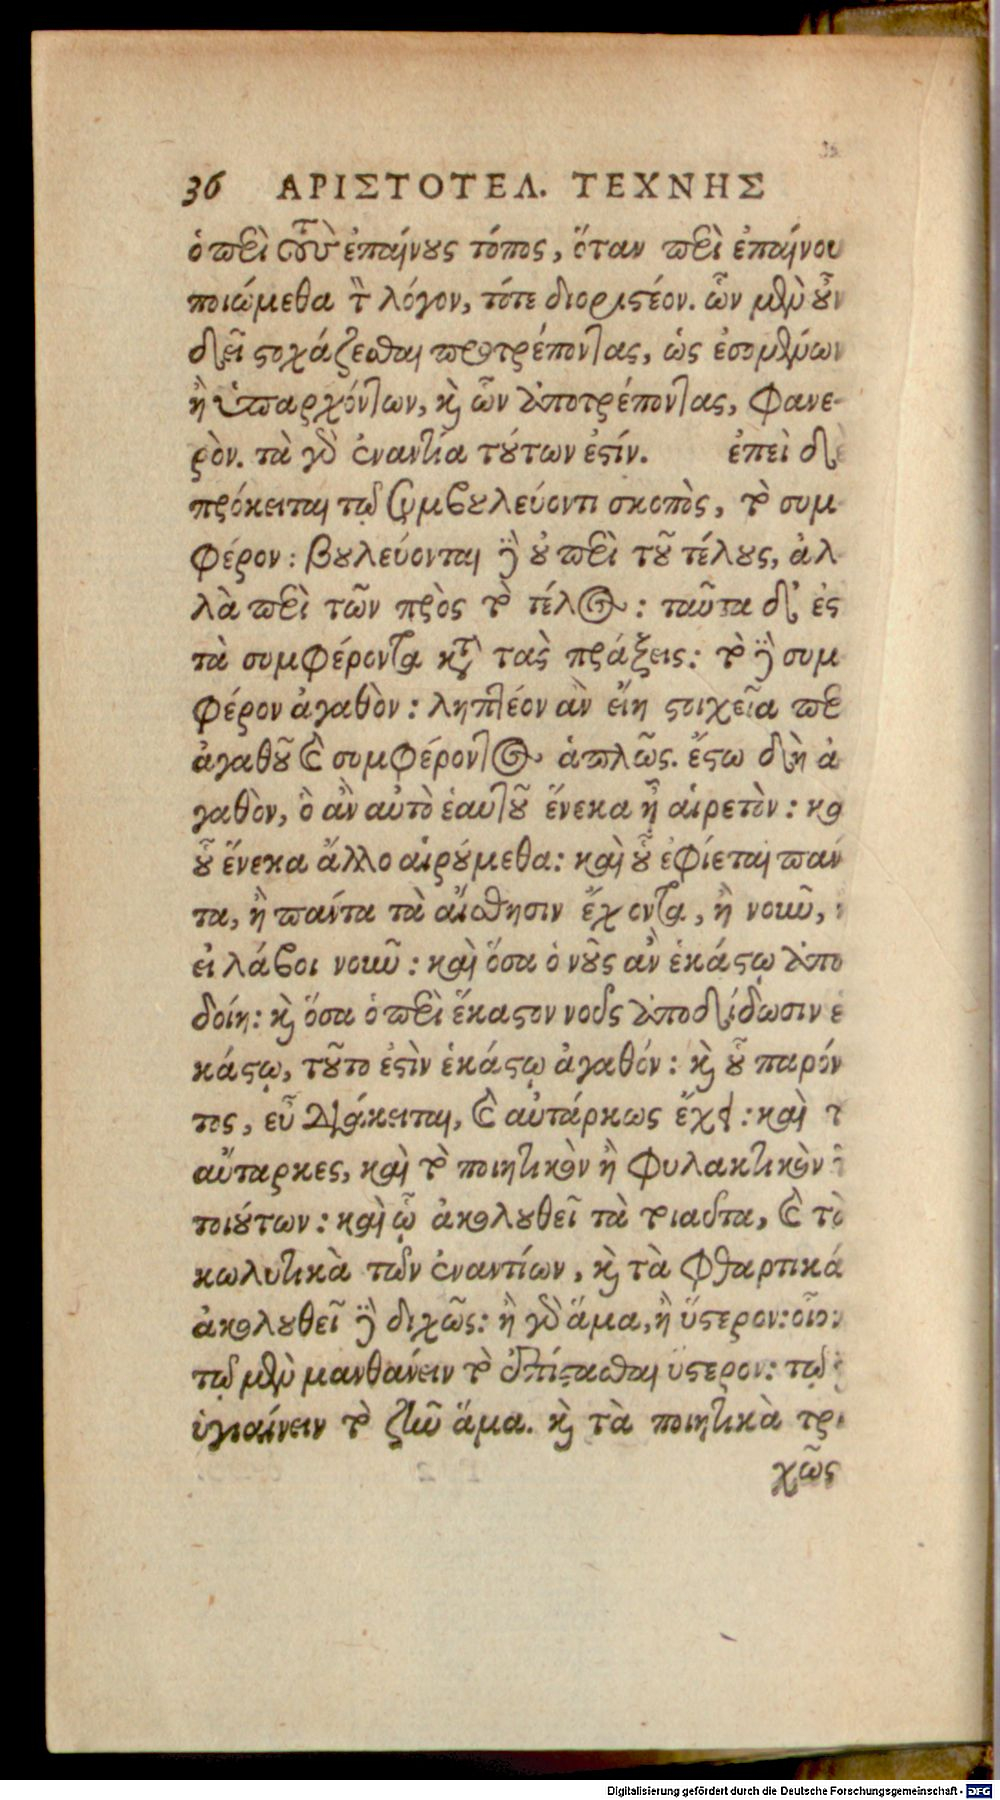 36 ΑΡΙΣΤΟΤΕΛ. ΤΕΧΝΗΣ
ὁ περὶ τοὺς ἐπαίνους τόπος, ὅταν περὶ ἐπαίνου
ποιώμεθα τὸν λόγον, τότε διοριστέον. ὧν μὲν οὖν
δεῖ στοχάζεσθαι προτρέποντας, ὡς ἐσομένων
ἢ ὑπαρχόντων, καὶ ὧν ἀποτρέποντας, φανε-
ρὸν. τὰ γὰρ ἐναντία τούτων ἐστίν. ἐπεὶ δὲ
πρόκειται τῷ συμβουλεύοντι σκοπὸς, τὸ συμ
φέρον: βουλεύονται γὰρ οὐ περὶ τοῦ τέλους, ἀλ
λὰ περὶ τῶν πρὸς τὸ τέλος: ταῦτα δ' ἐς
τὰ συμφέροντα κατὰ τὰς πράξεις: τὸ γὰρ συμ
φέρον ἀγαθὸν: ληπτέον ἂν εἴη στοιχεῖα περ
ἀγαθοῦ καὶ συμφέροντος ἁπλῶς. ἔστω δὴ ἀ
γαθὸν, ὃ ἂν αὐτὸ ἑαυτοῦ ἕνεκα ᾖ αἱρετὸν: κα
οὗ ἕνεκα ἄλλο αἱρούμεθα: καὶ οὗ ἐφίεται πάν
τα, ἢ πάντα τὰ αἴσθησιν ἔχοντα, ἢ νοῦν,
εἰ λάβοι νοῦν: καὶ ὅσα ὁ νοῦς ἂν ἑκάστῳ ἀπο
δοίη: καὶ ὅσα ὁ περὶ ἕκαστον νοῦς ἀποδίδωσιν ἑ
κάστῳ, τοῦτο ἐστὶν ἑκάστῳ ἀγαθόν: καὶ οὗ παρόν
τος, εὖ διάκειται, καὶ αὐτάρκως ἔχει: καὶ τ
αὔταρκες, καὶ τὸ ποιητικὸν ἢ φυλακτικὸν τ
ποιούτων: καὶ ᾧ ἀκολουθεῖ τὰ τοιαῦτα, καὶ τὰ
κωλυτικὰ τῶν ἐναντίων, καὶ τὰ φθαρτικά
ἀκολουθεῖ γὰρ διχῶς: ἢ γὰρ ἅμα, ἢ ὕστερον: οἷον
τῷ μὲν μανθάνειν τὸ ἐπίστασθαι ὕστερον: τῷ
ὑγιαίνειν τὸ ζῆν ἅμα. καὶ τὰ ποιητικὰ τρι
χῶς
Digitalisierung gefördert durch die Deutsche Forschungsgemeinschaft - DFG